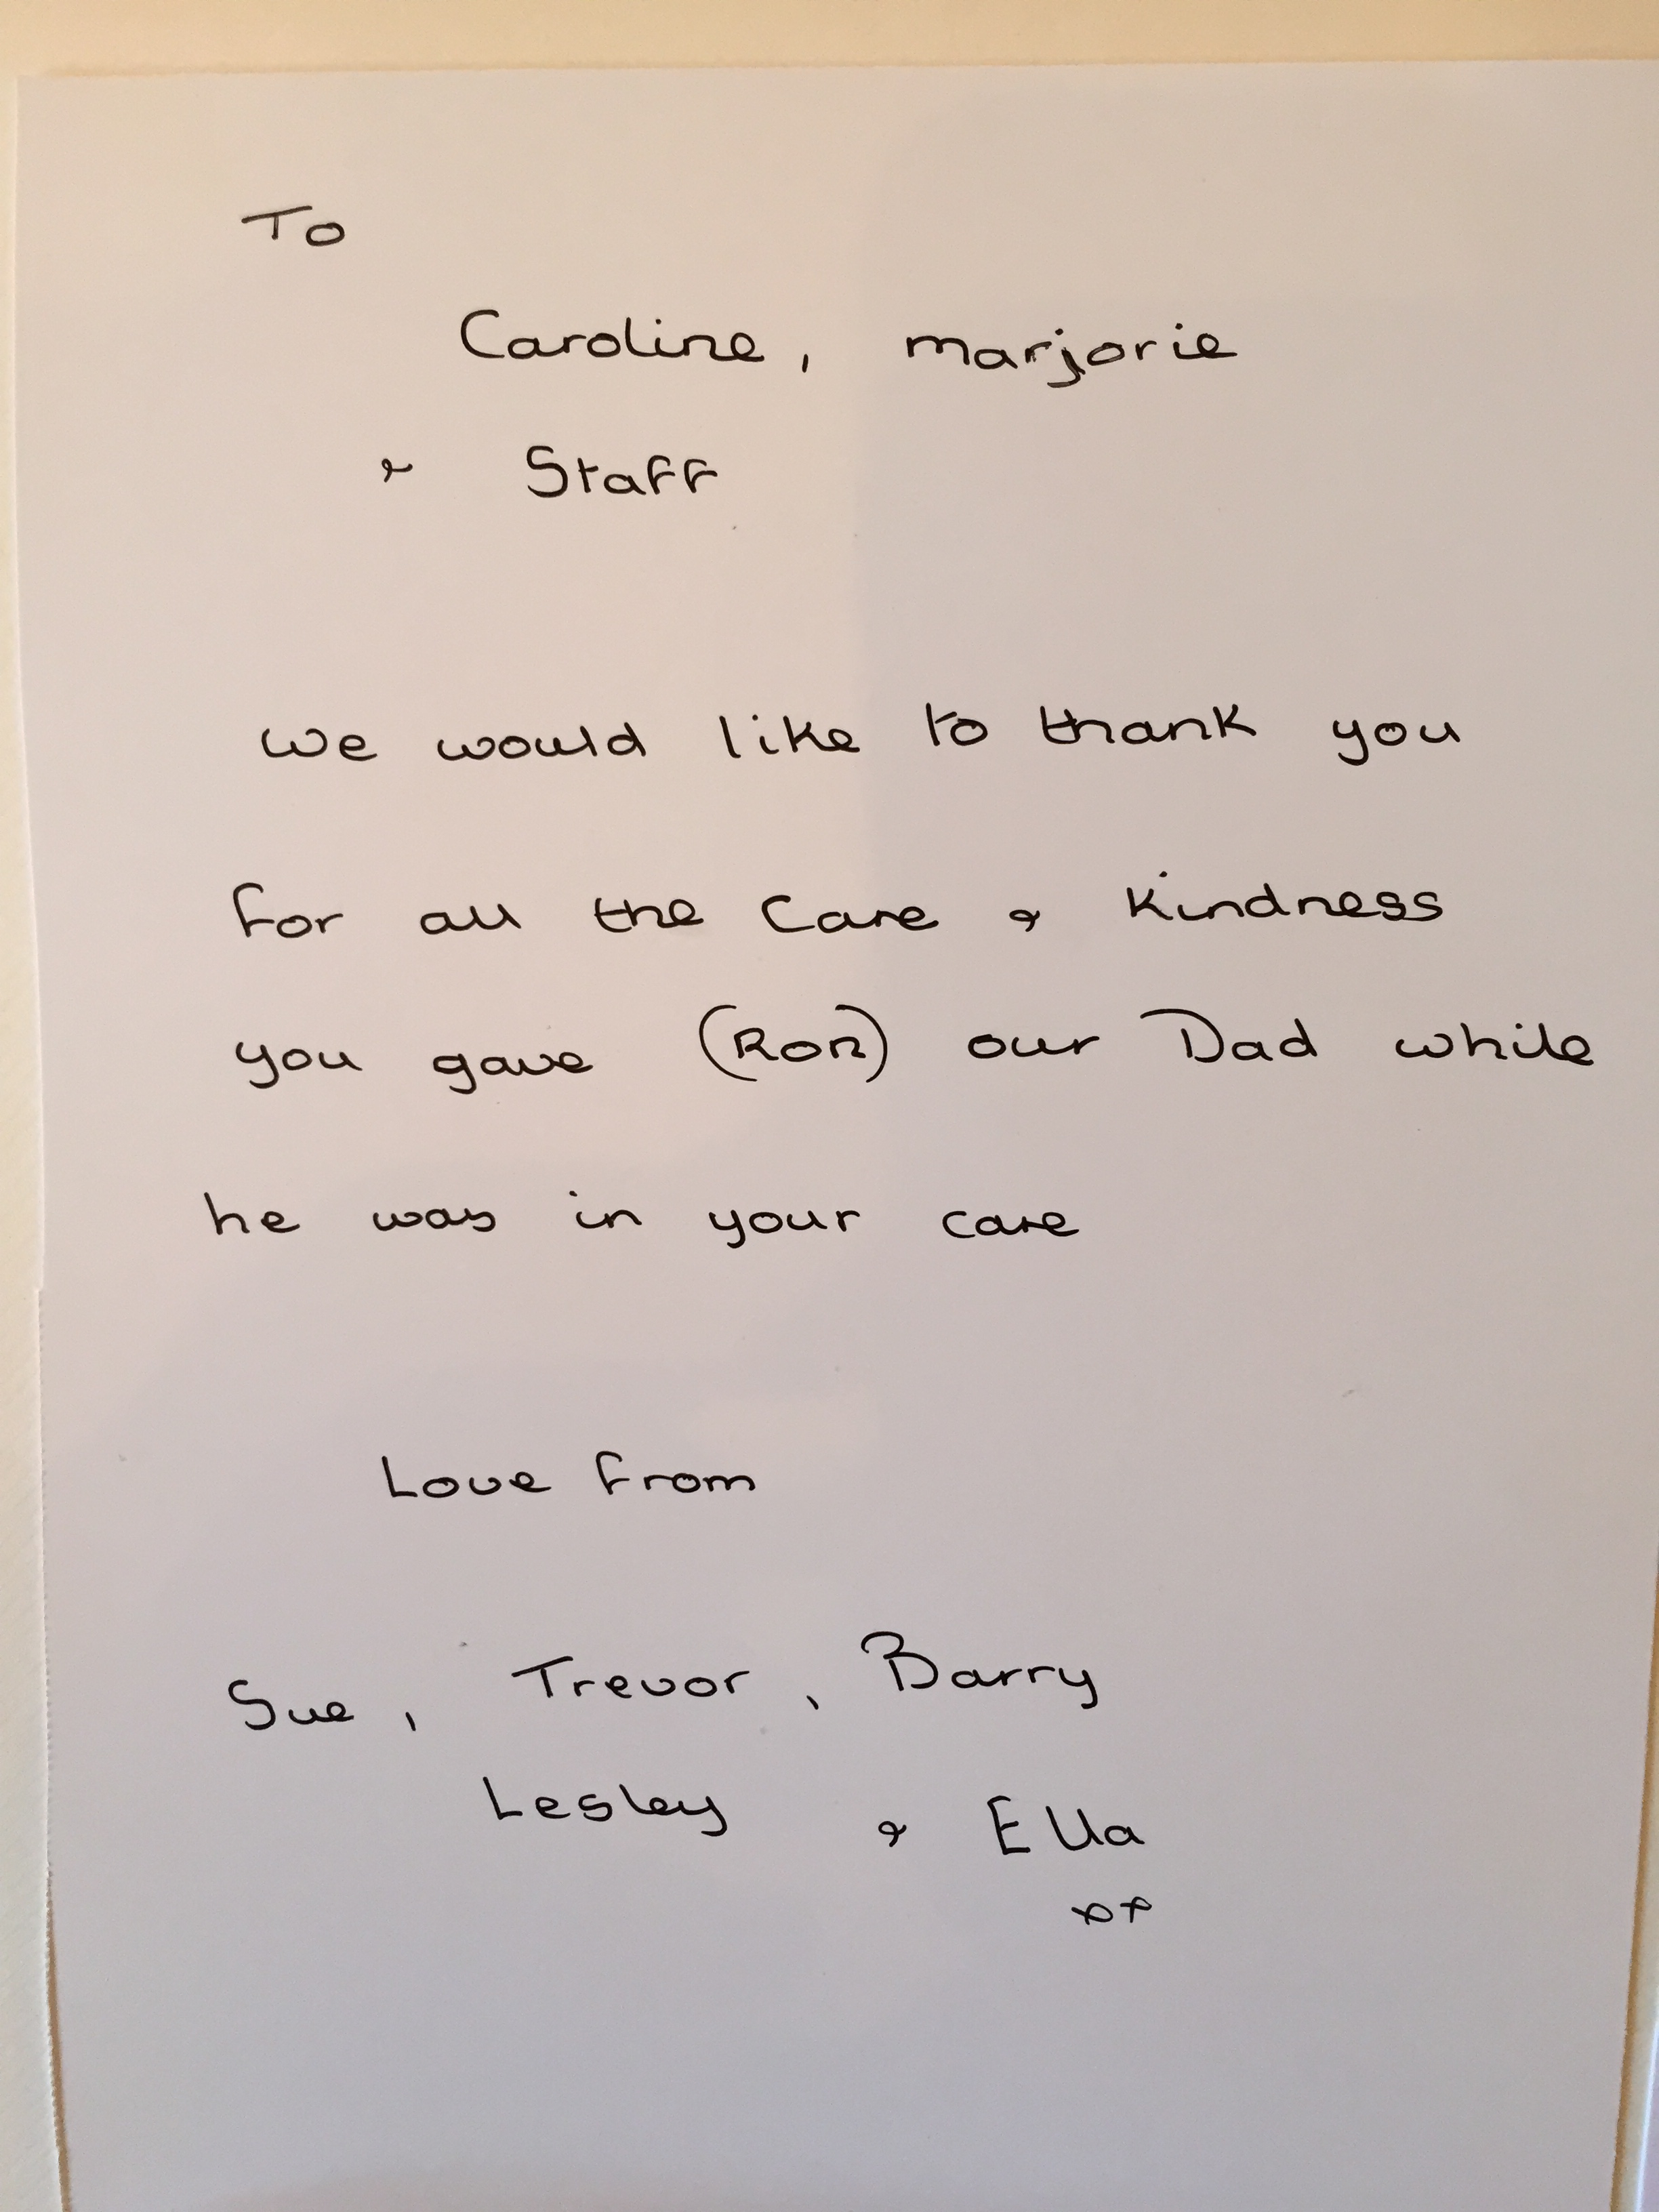 To
Caroline, marjorie
& Staff
we would like to thank you
for all the Care & Kindness
you gave (Ron) our Dad while
he was in your care
Love from
Sue, Trevor, Barry
Lesley & Ella
xx